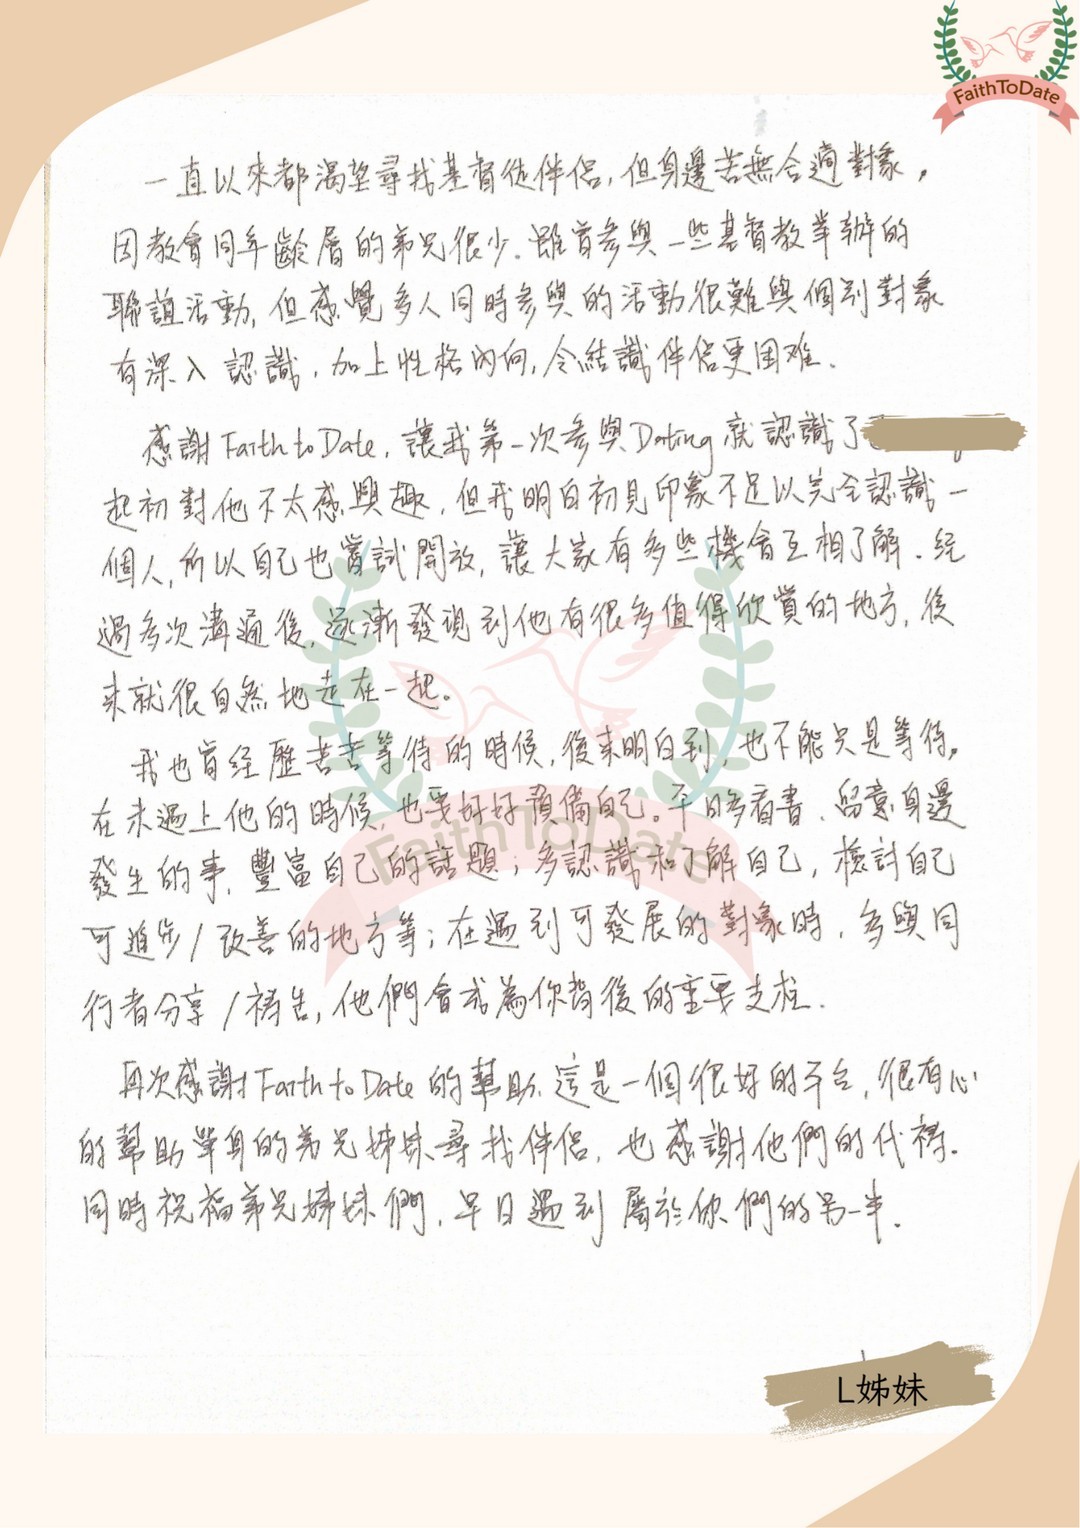 FaithToDate
一直以來都渴望尋找基督徒伴侶，但身邊苦無合適對象，
因教會同年齡層的弟兄很少。雖曾參與一些基督教舉辦的
聯誼活動，但感覺多人同時參與的活動很難與個別對象
有深入認識，加上性格內向，令結識伴侶更困难。
感謝Faith to Date，讓我第一次參與Dating就認識了
起初對他不太感興趣，但我明白初見印象不足以完全認識一
個人，所以自己也嘗試開放，讓大家有多些機會互相了解。經
過多次溝通後，逐漸發現到他有很多值得欣賞的地方，後
來就很自然地走在一起。
我也曾經歷苦苦等待的時候，後來明白到，也不能只是等待。
在未遇上他的時候，也要好好預備自己。平日多看書、留意身邊
發生的事，豐富自己的話題；多認識和了解自己，檢討自己
可進步/改善的地方等；在遇到可發展的對象時，多與同
行者分享/禱告，他們會成為你背後的重要支柱。
再次感謝Faith to Date的幫助。這是一個很好的平台，很有心
的幫助單身的弟兄姊妹尋找伴侶，也感謝他們的代禱。
同時祝福弟兄姊妹們，早日遇到屬於你們的另一半。
FaithToDate
L姊妹